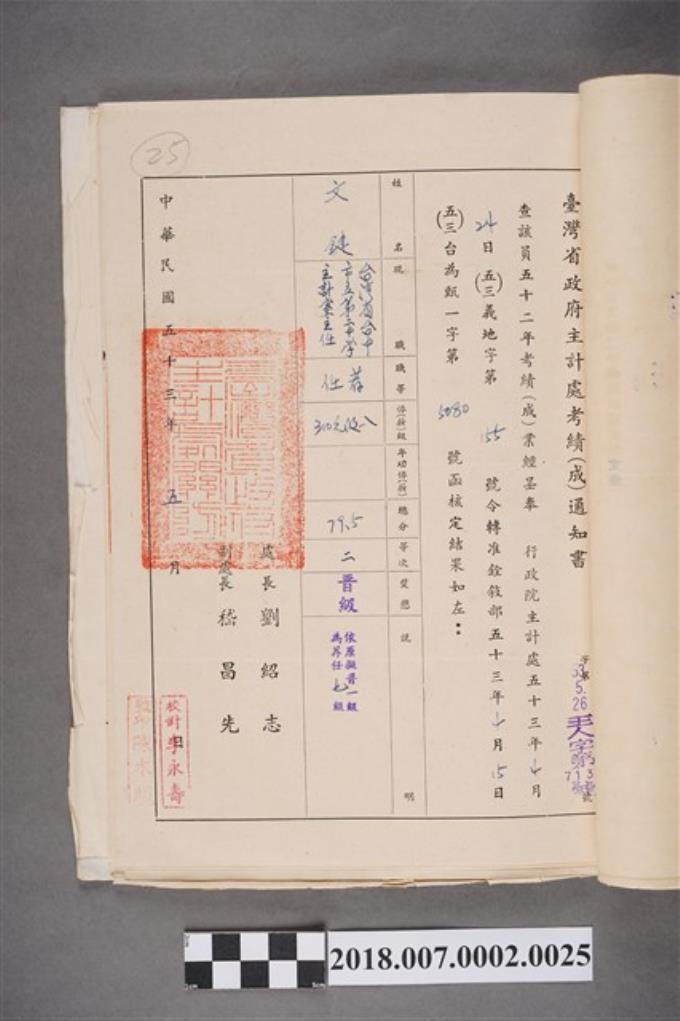 臺灣省政府主計處考績(成)通知書
字第
53.5.26
主人字第
713
號
查該員五十二年考績(成)業經呈奉 行政院主計處五十三年4月
24日(五三)義地字第 155 號令轉准銓敘部五十三年4月15日
(五三)台為甄一字第 5080 號函核定結果如左：
姓名
現職
職等
俸(薪)級
年功俸(薪)
總分
等次
獎懲
說明
文 鍵
台灣省台中
市立第二中學
主計室主任
荐任
八
310元
79.5
二
晉級
依原擬晉一級
為荐任七級
處長 劉紹志
副處長 嵇昌先
中華民國五十三年五月 日
校對 李永壽
25
2018.007.0002.0025